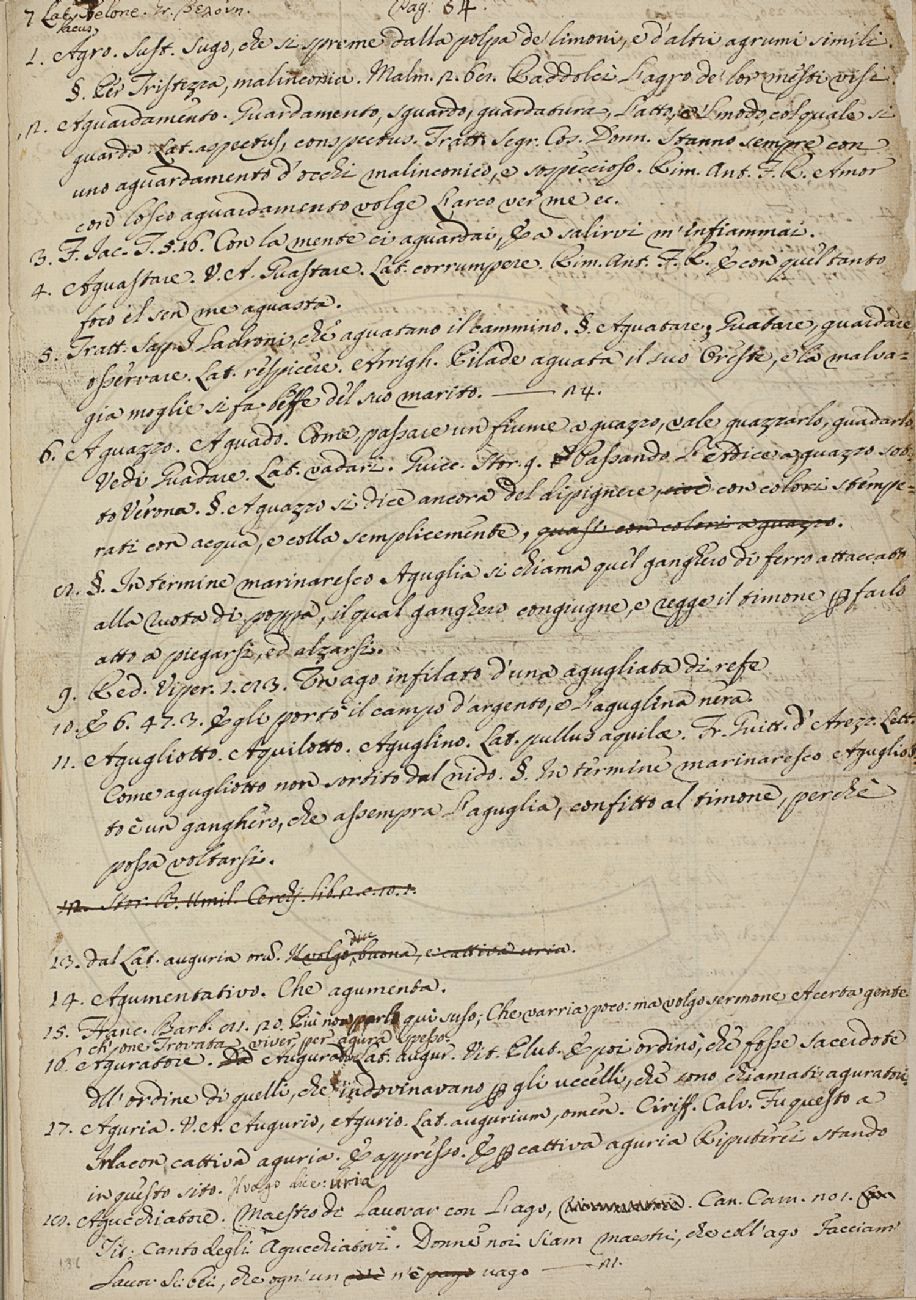 7 Lat. Belone. Gr. βελόνη. Pag. 64.
1. Agro. Sust. Sugo, che si spreme dalla polpa de' limoni, e d'altri agrumi simili.
§. Per Tristezza, malinconia. Malm. 2. 61. Raddolcì l'agro de' lor mesti visi.
2. Aguardamento. Guardamento, sguardo, guardatura, L'atto, e 'l modo, col quale si
guarda. Lat. aspectus, conspectus. Tratt. Segr. Cos. Donn. Stanno sempre con
uno aguardamento d'occhi malinconico, e sospiccioso. Rim. Ant. F. R. Amor
con losco aguardamento volge L'arco ver me ec.
3. F. Jac. T. 5. 16. Con la mente ci aguardai, E a salirvi m'infiammai.
4. Aguastare. V. A. Guastare. Lat. corrumpere. Rim. Ant. F. R. E con quel tanto
foco il sen me aguasta.
5. Tratt. Sap. I Ladroni, che aguatano il cammino. §. Aguatare, Guatare, guardare
osservare. Lat. respicere. Arrigh. Pilade aguata il suo Oreste, e la malva=
gia moglie si fa beffe del suo marito. —— 24.
6. Aguazzo. Aguado. Come, passare un fiume a guazzo, vale guazzarlo, guadarlo,
Vedi Guadare. Lat. vadari. Guicc. Stor. 9. Passando L'Adice a guazzo sot=
to Verona. §. Aguazzo si dice ancora del dipignere, cioè con colori stempe=
rati con acqua, e colla semplicemente, quasi con colori a guazzo.
8. §. In termine marinaresco Aguglia si chiama quel ganghero di ferro attaccato
alla ruota di poppa, il qual ganghero congiugne, e regge il timone p farlo
atto a piegarsi, ed alzarsi.
9. Red. Vip. 1. 83. Un ago infilato d'una agugliata di refe
10. E 6. 47. 3. Egli portò il campo d'argento, e L'aguglina nera.
11. Agugliotto. Aquilotto. Aguglino. Lat. pullus aquilæ. Fr. Guitt. d'Arezz. Lett.
Come agugliotto non sortito dal nido. §. In termine marinaresco Agugliot=
to è un ganghero, che assempra L'aguglia, confitto al timone, perchè
possa voltarsi.
12. Stor. B. Umil. Cerchj. lib. 2. c. 10. 1.
13. dal Lat. auguria ora. Il volgo dice, buona, e cattiva uria.
14. Agumentativo. Che agumenta.
15. Franc. Barb. 81. 20. Più non parlo quì suso; Che varria poco: ma volgo sermone Acerba gente
ch'one Trovata viver per agura spesso.
16. Aguratore. Auguratore Lat. augur. Vit. Plut. E poi ordinò, che fosse sacerdote
dell'ordine di quelli, che indovinavano p gli uccelli, che sono chiamati aguratori
17. Aguria. V. A. Augurio, Agurio. Lat. augurium, omen. Ciriff. Calv. Fu questo a
Irlacon cattiva aguria. E appresso. E p cattiva aguria Riputerei stando
in questo sito. Il volgo dice: uria
18. Agucchiatore. Maestro di Lavorar con L'ago, Can. Carn. 201.
Tit: Canto degli Agucchiatori. Donne noi siam maestri, che coll'ago Facciam
Lavor sì bei, che ogn'un n'è pago vago —— 21.